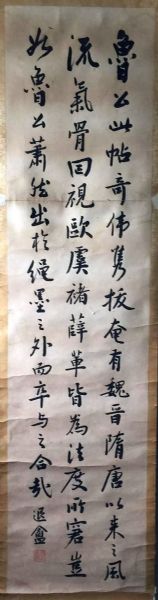 魯公此帖奇伟秀拔奄有魏晋隋唐以来之風
流氣骨回視歐虞褚薛軰皆為法度所窘豈
如魯公蕭然出於繩墨之外而卒与之合哉
退盦